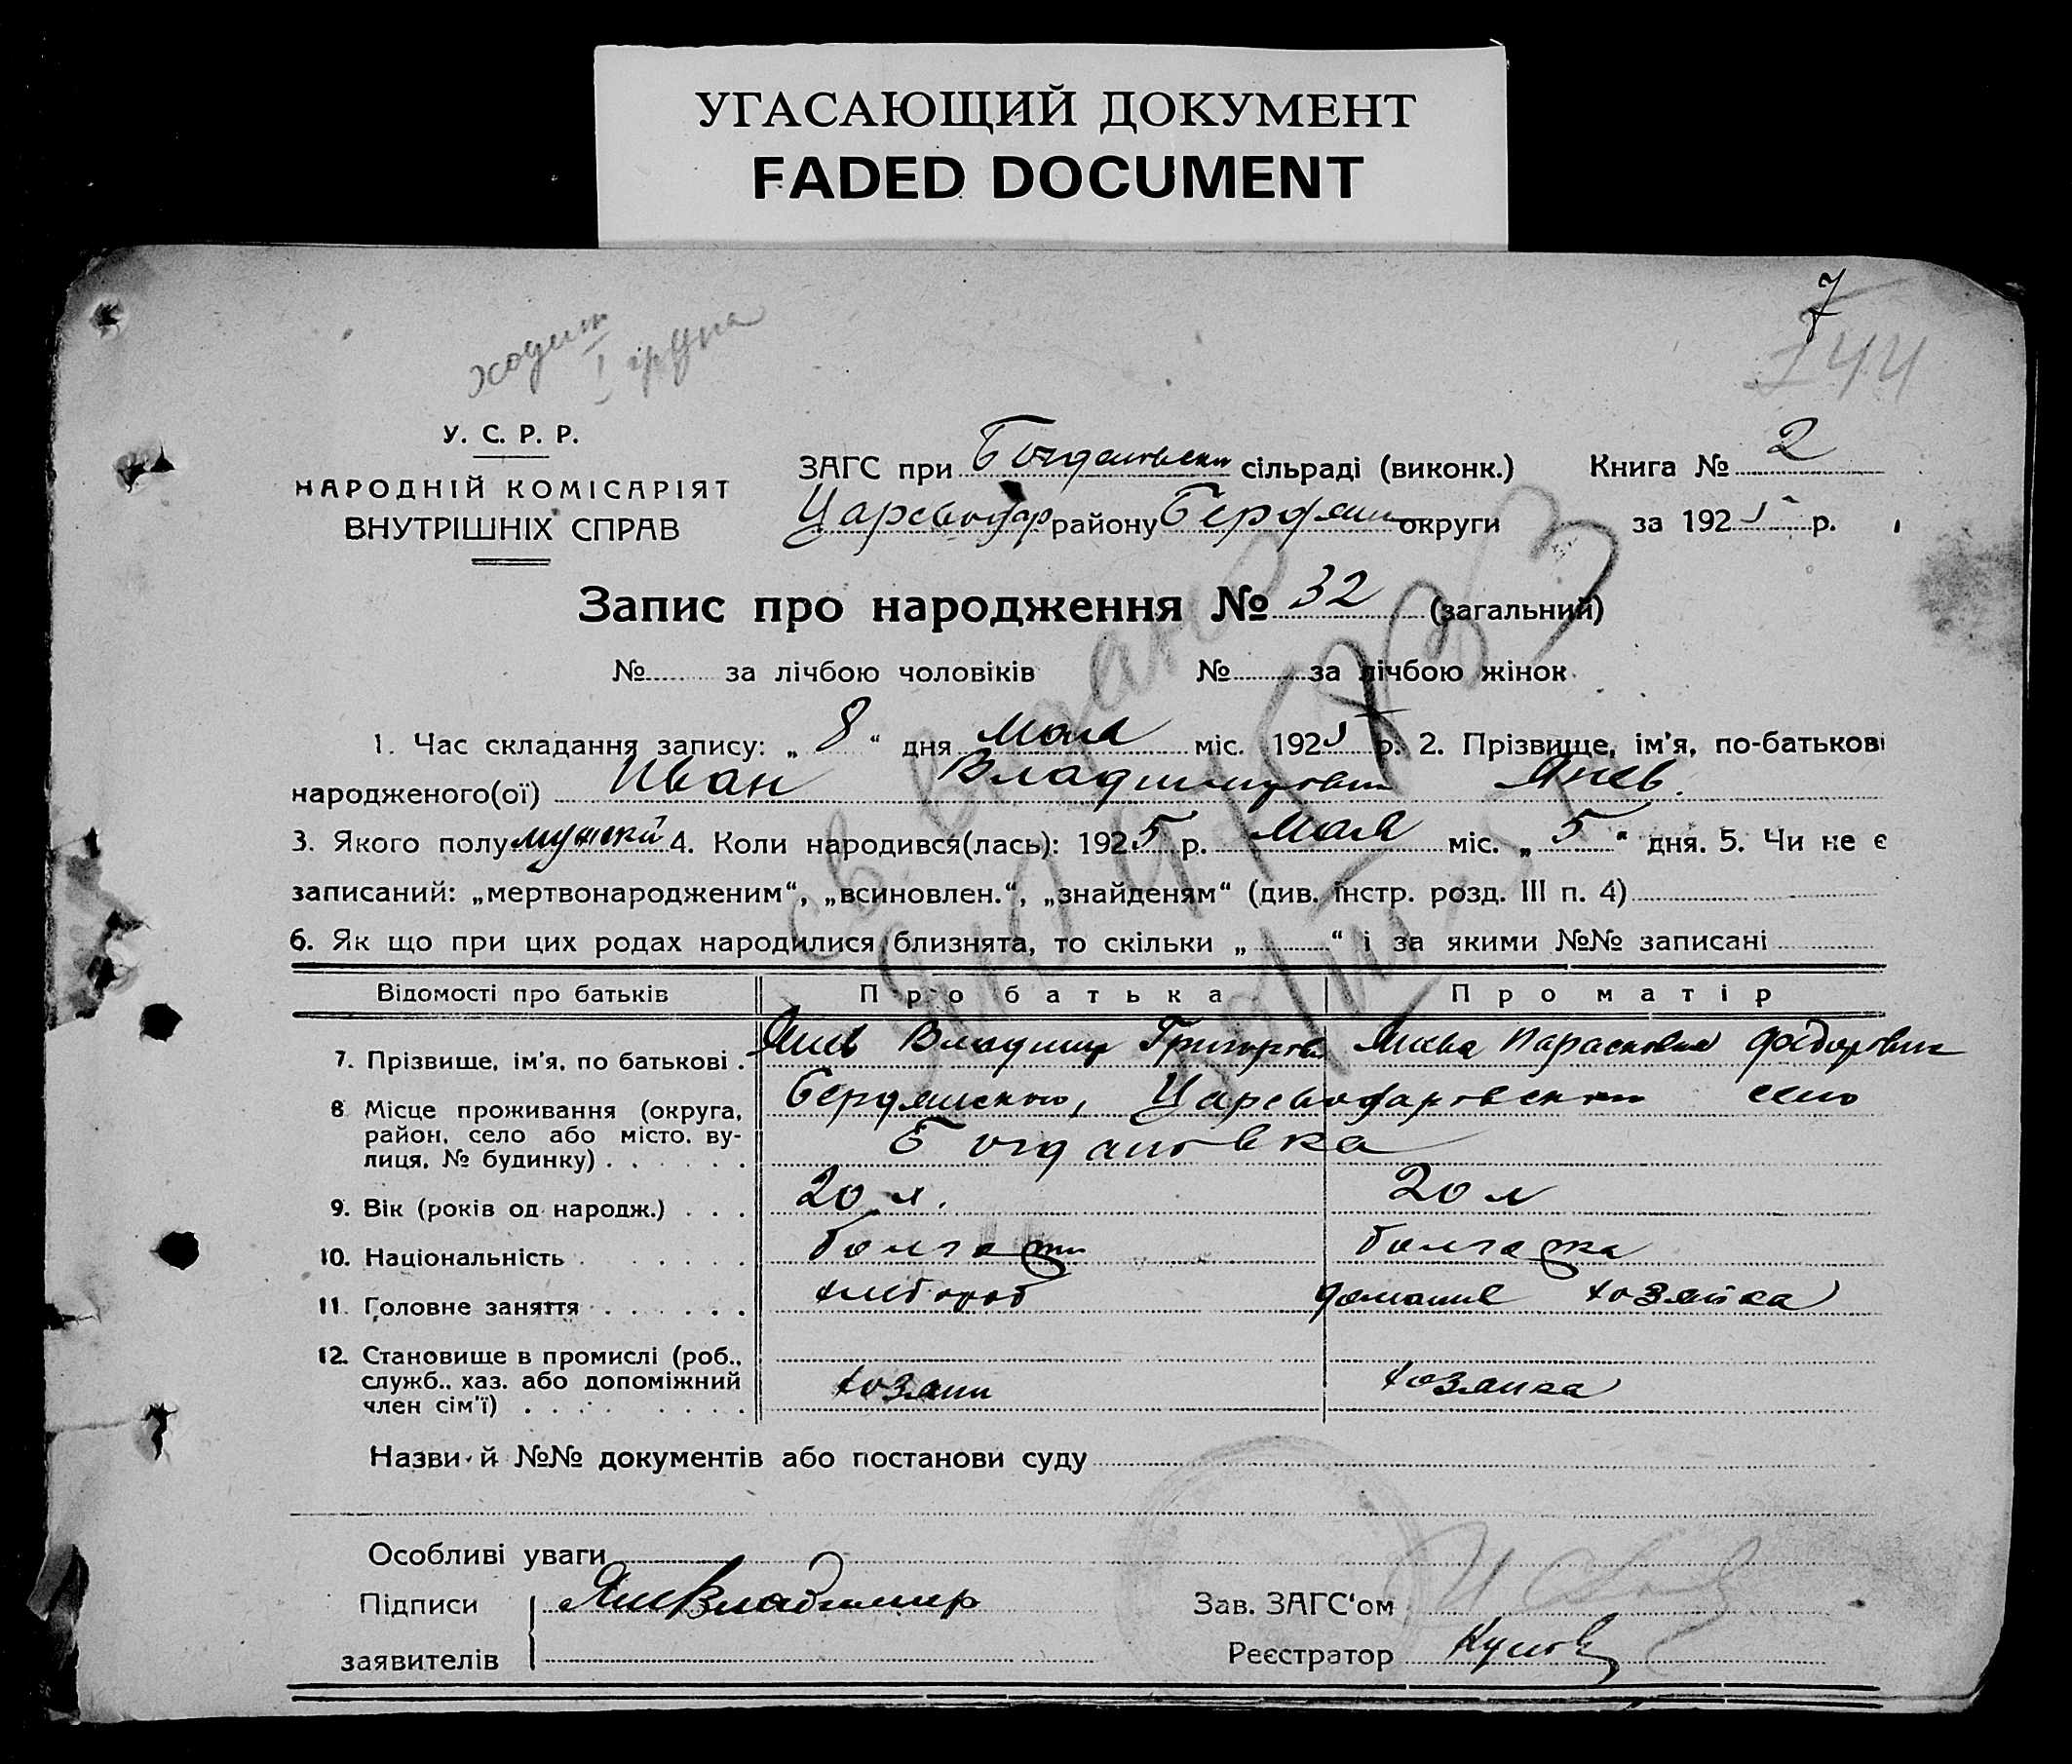 УГАСАЮЩИЙ ДОКУМЕНТ
FADED DOCUMENT
7
744
ходит
1 група
У. С. Р. Р.
НАРОДНІЙ КОМІСАРІЯТ
ВНУТРІШНІХ СПРАВ
ЗАГС при Богдановски сільраді (виконк.) Книга № 2
Цареводар району Бердян округи за 1925 р.
Запис про народження № 32 (загальний)
№ за лічбою чоловіків № за лічбою жінок
1. Час складання запису: „ 8 “ дня Мая міс. 1925 р. 2. Прізвище, ім'я, по-батькові
народженого(ої) Иван Владимирович Янев.
3. Якого полу мужской 4. Коли народився(лась): 1925 р. Мая міс. „ 5 “ дня. 5. Чи не є
записаний: „мертвонародженим“, „всиновлен.“, „знайденям“ (див. інстр. розд. III п. 4)
6. Як що при цих родах народилися близнята, то скільки „ “ і за якими №№ записані
Відомості про батьків Про батька Про матір
7. Прізвище, ім'я, по батькові . Янев Владимир Григоров Янева Парасковия Федоровна
8 Місце проживання (округа, Бердянской, Цареводаровской село
район, село або місто, ву- Богдановка
лиця, № будинку) . . . . . .
9. Вік (років од народж.) . . . 20 л. 20 л
10. Національність . . . . . . болгарин болгарка
11. Головне заняття . . . . . . хлебороб домашне хозяйка
12. Становище в промислі (роб.,
служб., хаз. або допоміжний хозяин хозяика
член сім'ї) . . . . . . . .
Назви й №№ документів або постанови суду
Особливі уваги
Підписи Янев Владимир Зав. ЗАГС‘ом
заявителів Реєстратор